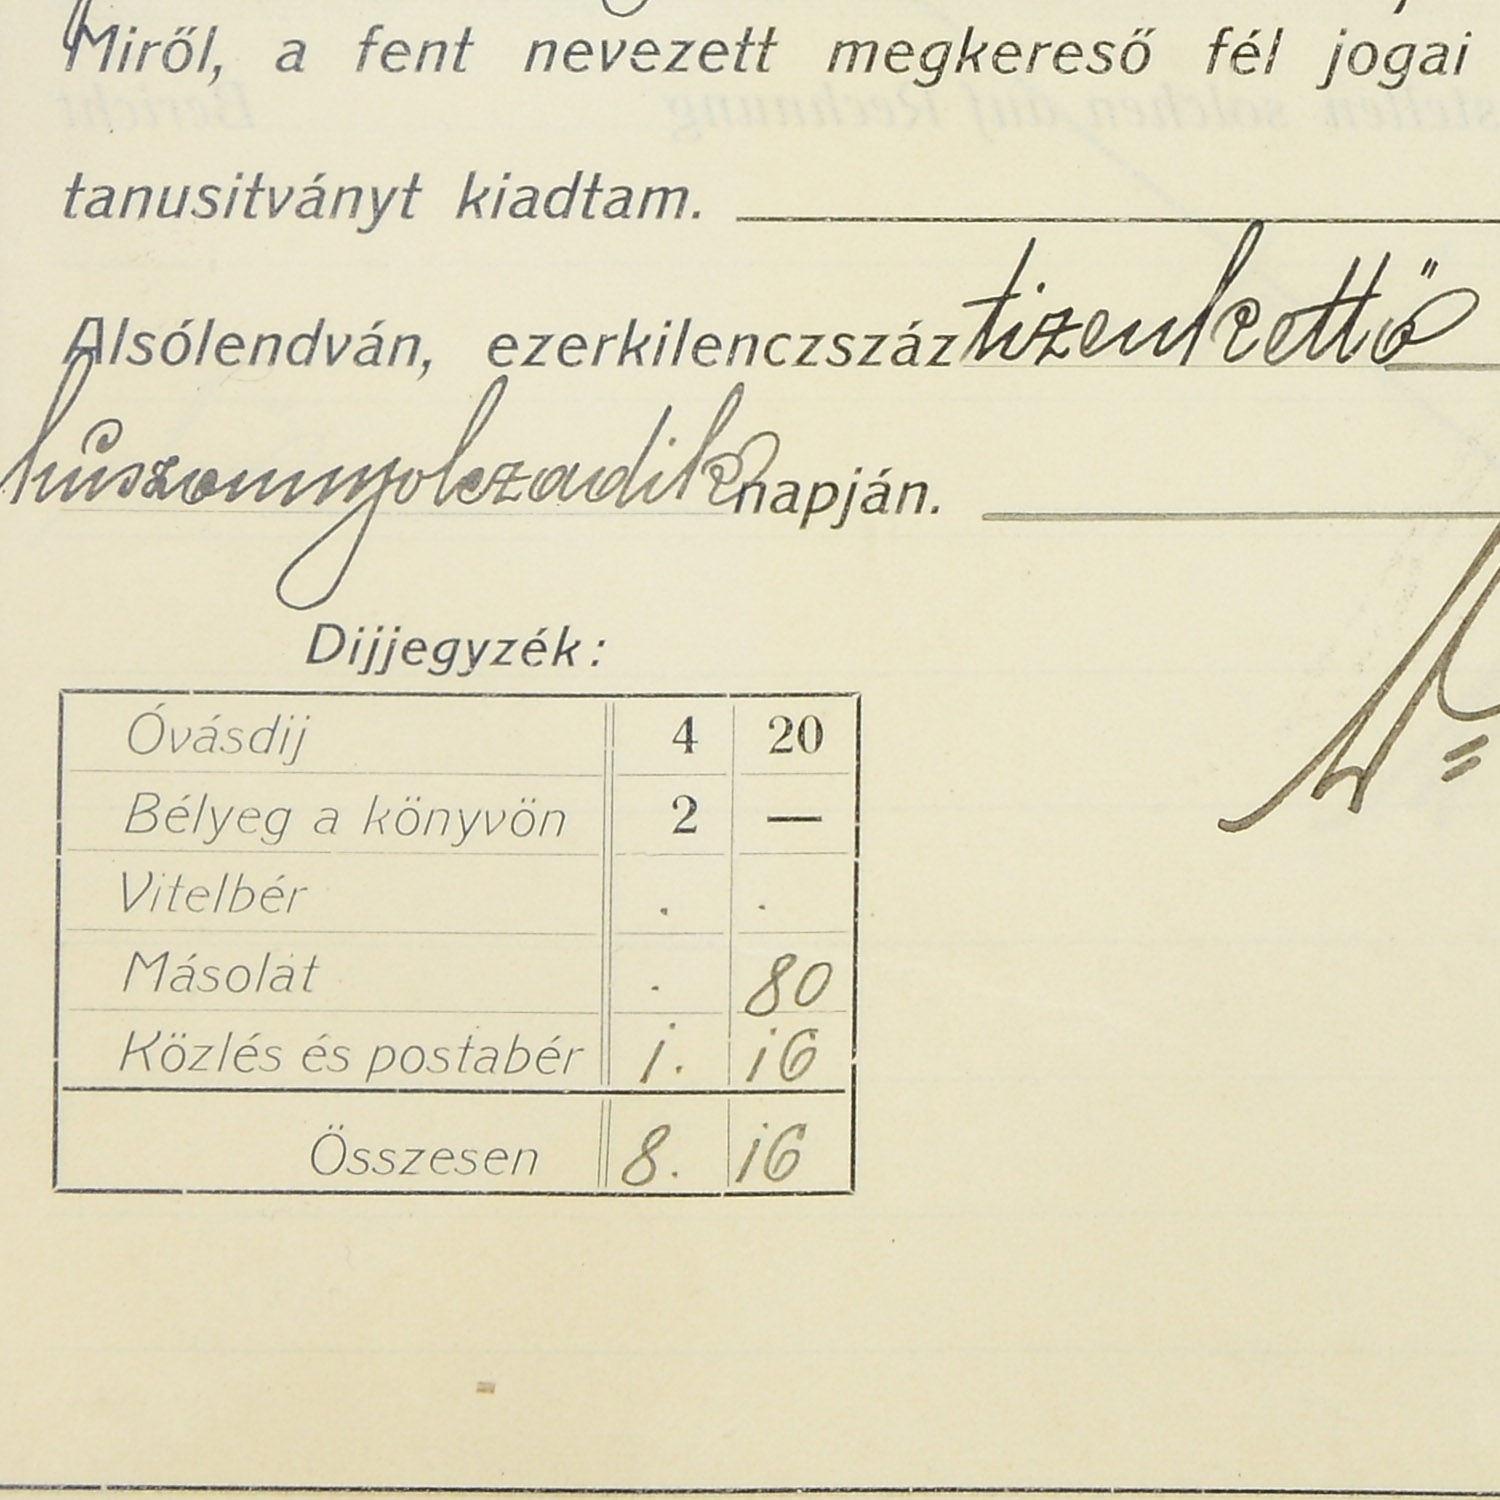 Miről, a fent nevezett megkereső fél jogai
tanusitványt kiadtam.
Alsólendván, ezerkilenczszáz tizenkettő
huszonnyolczadik napján.
Dijjegyzék:
Óvásdij 4 20
Bélyeg a könyvön 2 —
Vitelbér . .
Másolat . 80
Közlés és postabér 1. 16
Összesen 8. 16